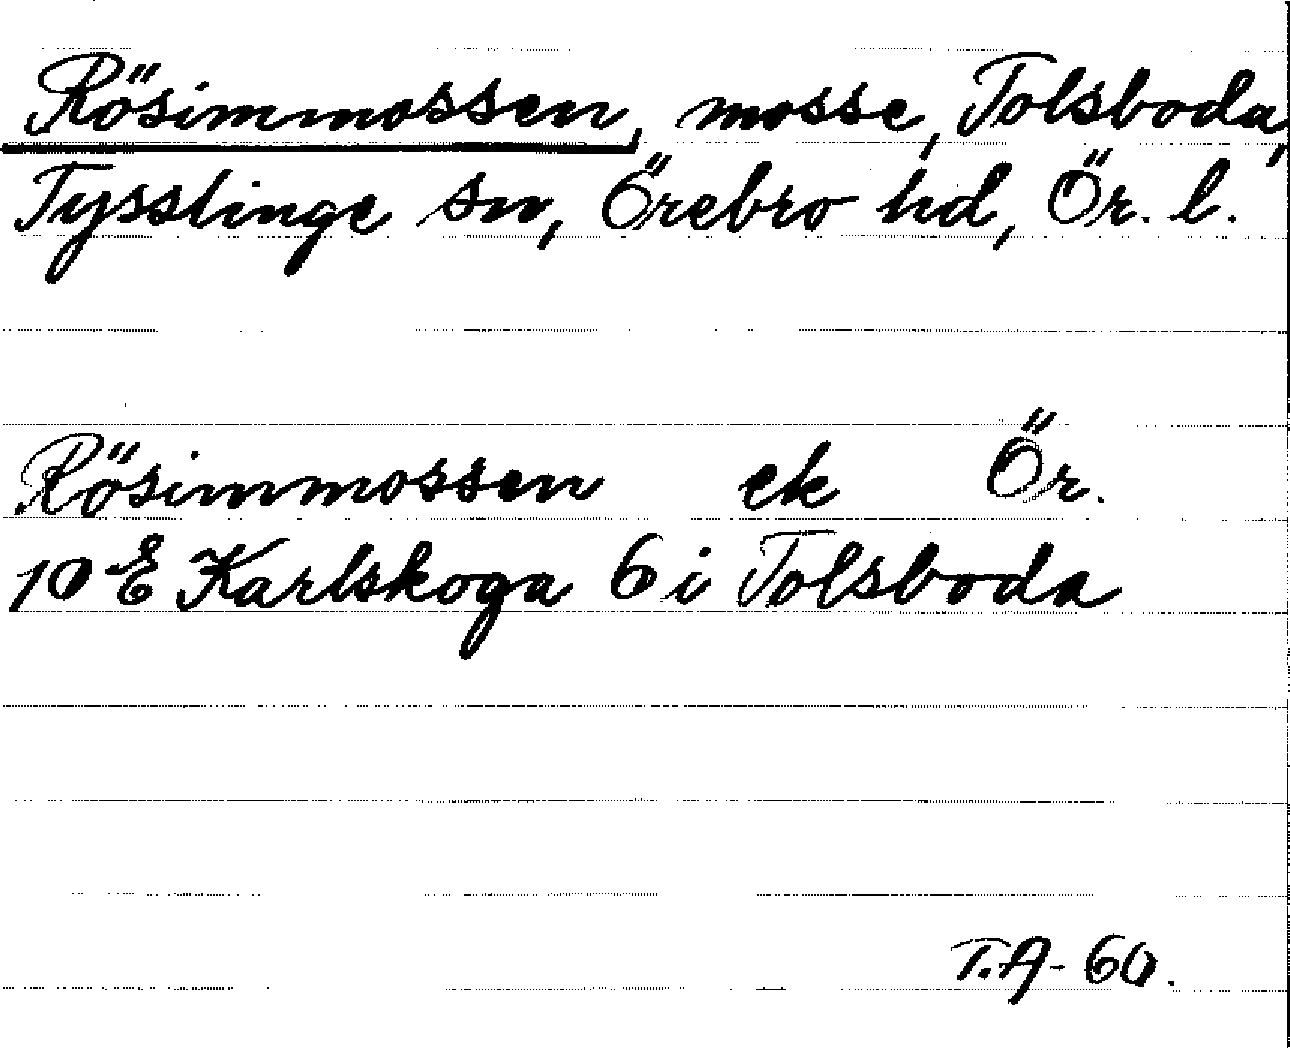 Rösimmossen, mosse, Tolsboda,
Tysslinge sn, Örebro hd, Ör. l.
Rösimmossen ek Ör.
10 E Karlskoga 6 i Tolsboda
T.A-60.